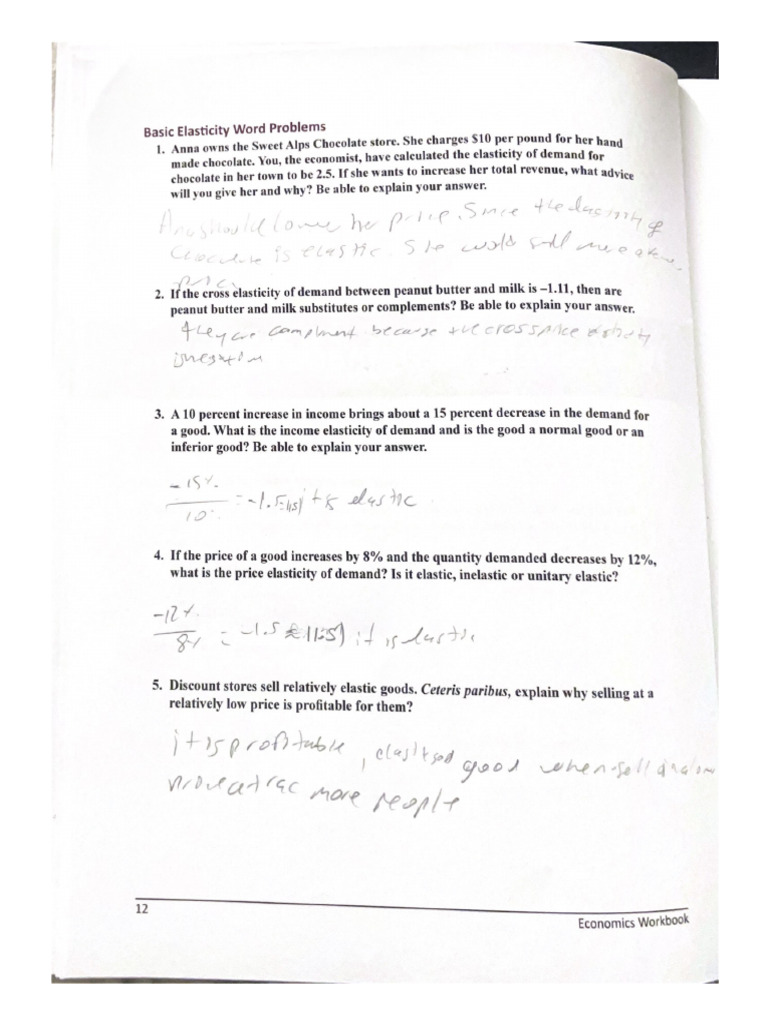 Basic Elasticity Word Problems
1. Anna owns the Sweet Alps Chocolate store. She charges $10 per pound for her hand
made chocolate. You, the economist, have calculated the elasticity of demand for
chocolate in her town to be 2.5. If she wants to increase her total revenue, what advice
will you give her and why? Be able to explain your answer.
her price. Since the
is elastic. She would sell more
2. If the cross elasticity of demand between peanut butter and milk is –1.11, then are
peanut butter and milk substitutes or complements? Be able to explain your answer.
they are compliment because the cross price
3. A 10 percent increase in income brings about a 15 percent decrease in the demand for
a good. What is the income elasticity of demand and is the good a normal good or an
inferior good? Be able to explain your answer.
-15%
= -1.5 it is elastic
10%
4. If the price of a good increases by 8% and the quantity demanded decreases by 12%,
what is the price elasticity of demand? Is it elastic, inelastic or unitary elastic?
-12%
= -1.5 |1.5| it is elastic
8%
5. Discount stores sell relatively elastic goods. Ceteris paribus, explain why selling at a
relatively low price is profitable for them?
it is profitable, good when sell
more people
12
Economics Workbook